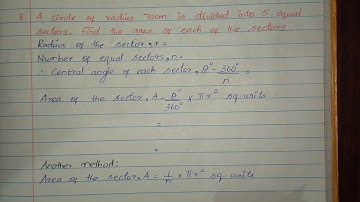 8. A circle of radius 70cm is divided into 5 equal
sectors. Find the area of each of the sectors.
Radius of the sector, r =
Number of equal sectors, n =
∴ Central angle of each sector, θ° = 360°/n =
Area of the sector, A = θ°/360° × πr² sq.units
=
=
Another method:
Area of the sector, A = 1/n × πr² sq.units